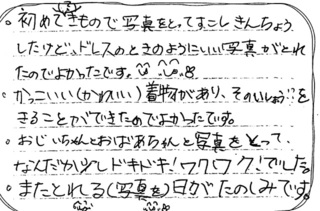 。初めてきもので写真をとってすこしきんちょう
したけど、ドレスのときのようにいい写真がとれ
たのでよかったです。
。かっこいい(かわいい)着物があり、そのいしょう!!を
きることができたのでよかったです。
。おじいちゃんとおばあちゃんと写真をとって、
なんだか少しドキドキ!ワクワク!でした。
。またとれる(写真を)日がたのしみです。